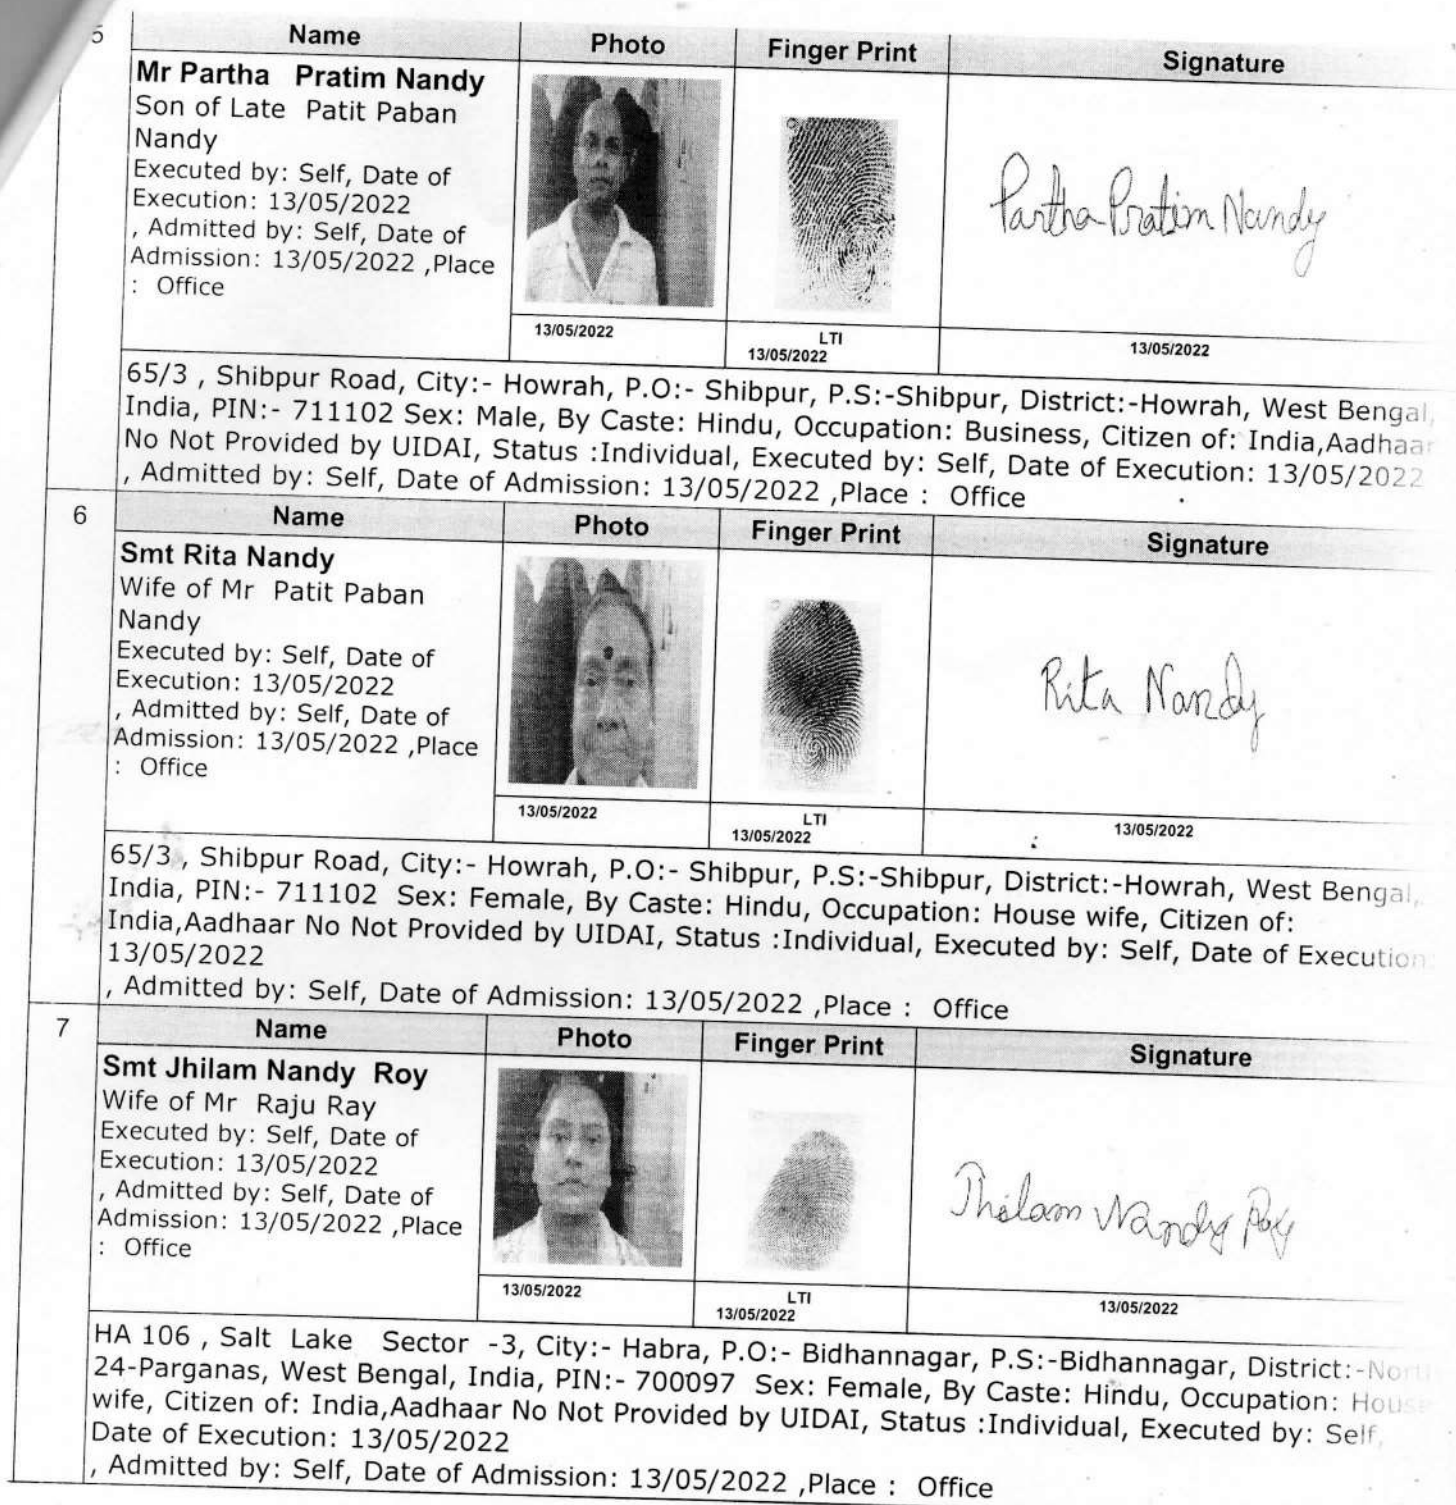 5
Name Photo Finger Print Signature
Mr Partha Pratim Nandy
Son of Late Patit Paban
Nandy
Executed by: Self, Date of
Execution: 13/05/2022
, Admitted by: Self, Date of
Admission: 13/05/2022 ,Place
: Office
Partha Pratim Nandy
13/05/2022
LTI
13/05/2022
13/05/2022
65/3 , Shibpur Road, City:- Howrah, P.O:- Shibpur, P.S:-Shibpur, District:-Howrah, West Bengal,
India, PIN:- 711102 Sex: Male, By Caste: Hindu, Occupation: Business, Citizen of: India,Aadhaar
No Not Provided by UIDAI, Status :Individual, Executed by: Self, Date of Execution: 13/05/2022
, Admitted by: Self, Date of Admission: 13/05/2022 ,Place : Office
6
Name Photo Finger Print Signature
Smt Rita Nandy
Wife of Mr Patit Paban
Nandy
Executed by: Self, Date of
Execution: 13/05/2022
, Admitted by: Self, Date of
Admission: 13/05/2022 ,Place
: Office
Rita Nandy
13/05/2022
LTI
13/05/2022
13/05/2022
65/3 , Shibpur Road, City:- Howrah, P.O:- Shibpur, P.S:-Shibpur, District:-Howrah, West Bengal,
India, PIN:- 711102 Sex: Female, By Caste: Hindu, Occupation: House wife, Citizen of:
India,Aadhaar No Not Provided by UIDAI, Status :Individual, Executed by: Self, Date of Execution:
13/05/2022
, Admitted by: Self, Date of Admission: 13/05/2022 ,Place : Office
7
Name Photo Finger Print Signature
Smt Jhilam Nandy Roy
Wife of Mr Raju Ray
Executed by: Self, Date of
Execution: 13/05/2022
, Admitted by: Self, Date of
Admission: 13/05/2022 ,Place
: Office
Jhilam Nandy Roy
13/05/2022
LTI
13/05/2022
13/05/2022
HA 106 , Salt Lake Sector -3, City:- Habra, P.O:- Bidhannagar, P.S:-Bidhannagar, District:-North
24-Parganas, West Bengal, India, PIN:- 700097 Sex: Female, By Caste: Hindu, Occupation: House
wife, Citizen of: India,Aadhaar No Not Provided by UIDAI, Status :Individual, Executed by: Self,
Date of Execution: 13/05/2022
, Admitted by: Self, Date of Admission: 13/05/2022 ,Place : Office